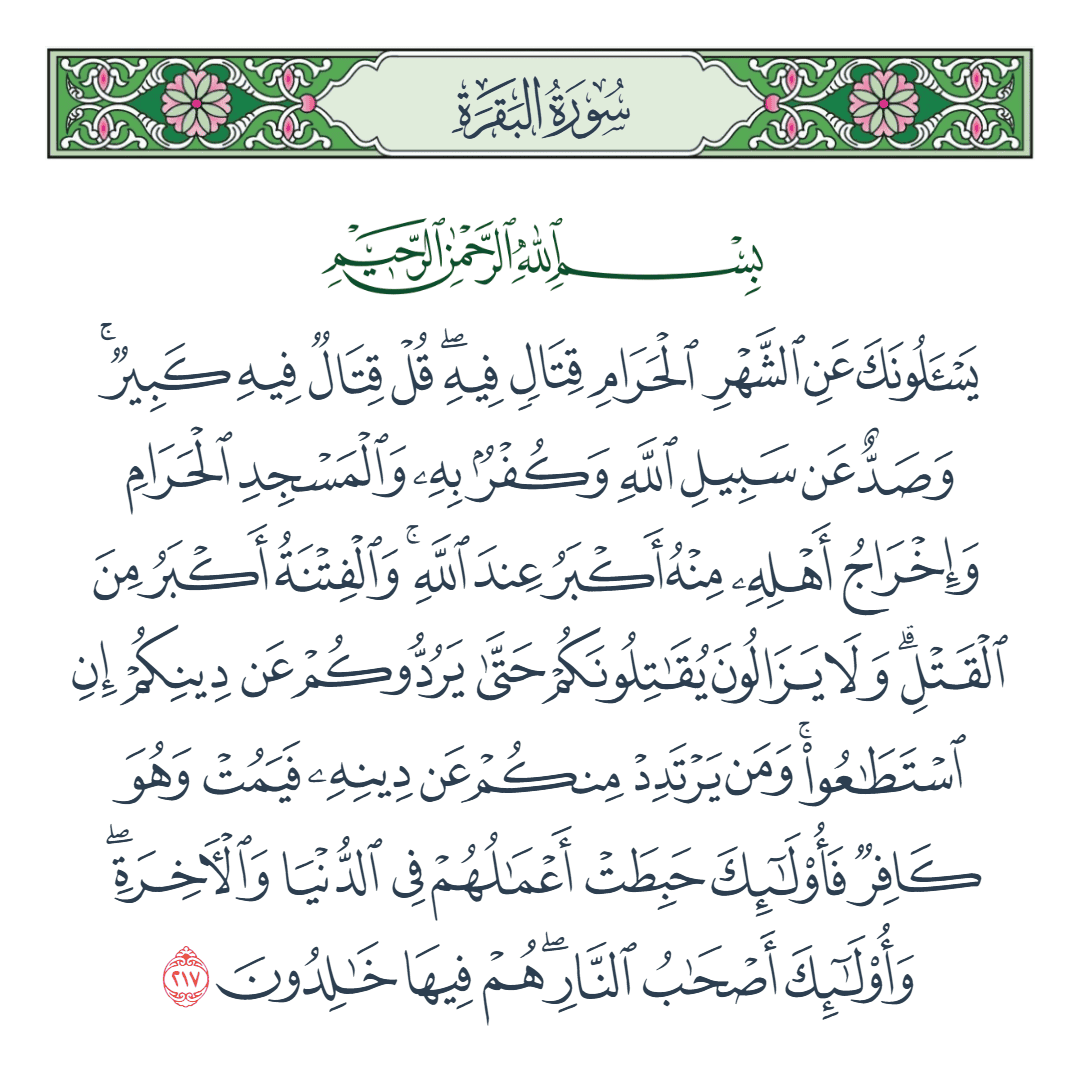 سُورَةُ البَقَرَةِ
بِسْمِ ٱللَّهِ ٱلرَّحْمَٰنِ ٱلرَّحِيمِ
يَسْـَٔلُونَكَ عَنِ ٱلشَّهْرِ ٱلْحَرَامِ قِتَالٍ فِيهِ ۖ قُلْ قِتَالٌ فِيهِ كَبِيرٌ ۚ
وَصَدٌّ عَن سَبِيلِ ٱللَّهِ وَكُفْرٌۢ بِهِۦ وَٱلْمَسْجِدِ ٱلْحَرَامِ
وَإِخْرَاجُ أَهْلِهِۦ مِنْهُ أَكْبَرُ عِندَ ٱللَّهِ ۚ وَٱلْفِتْنَةُ أَكْبَرُ مِنَ
ٱلْقَتْلِ ۗ وَلَا يَزَالُونَ يُقَـٰتِلُونَكُمْ حَتَّىٰ يَرُدُّوكُمْ عَن دِينِكُمْ إِنِ
ٱسْتَطَـٰعُوا۟ ۚ وَمَن يَرْتَدِدْ مِنكُمْ عَن دِينِهِۦ فَيَمُتْ وَهُوَ
كَافِرٌ فَأُو۟لَـٰٓئِكَ حَبِطَتْ أَعْمَـٰلُهُمْ فِى ٱلدُّنْيَا وَٱلْـَٔاخِرَةِ ۖ
وَأُو۟لَـٰٓئِكَ أَصْحَـٰبُ ٱلنَّارِ ۖ هُمْ فِيهَا خَـٰلِدُونَ ٢١٧